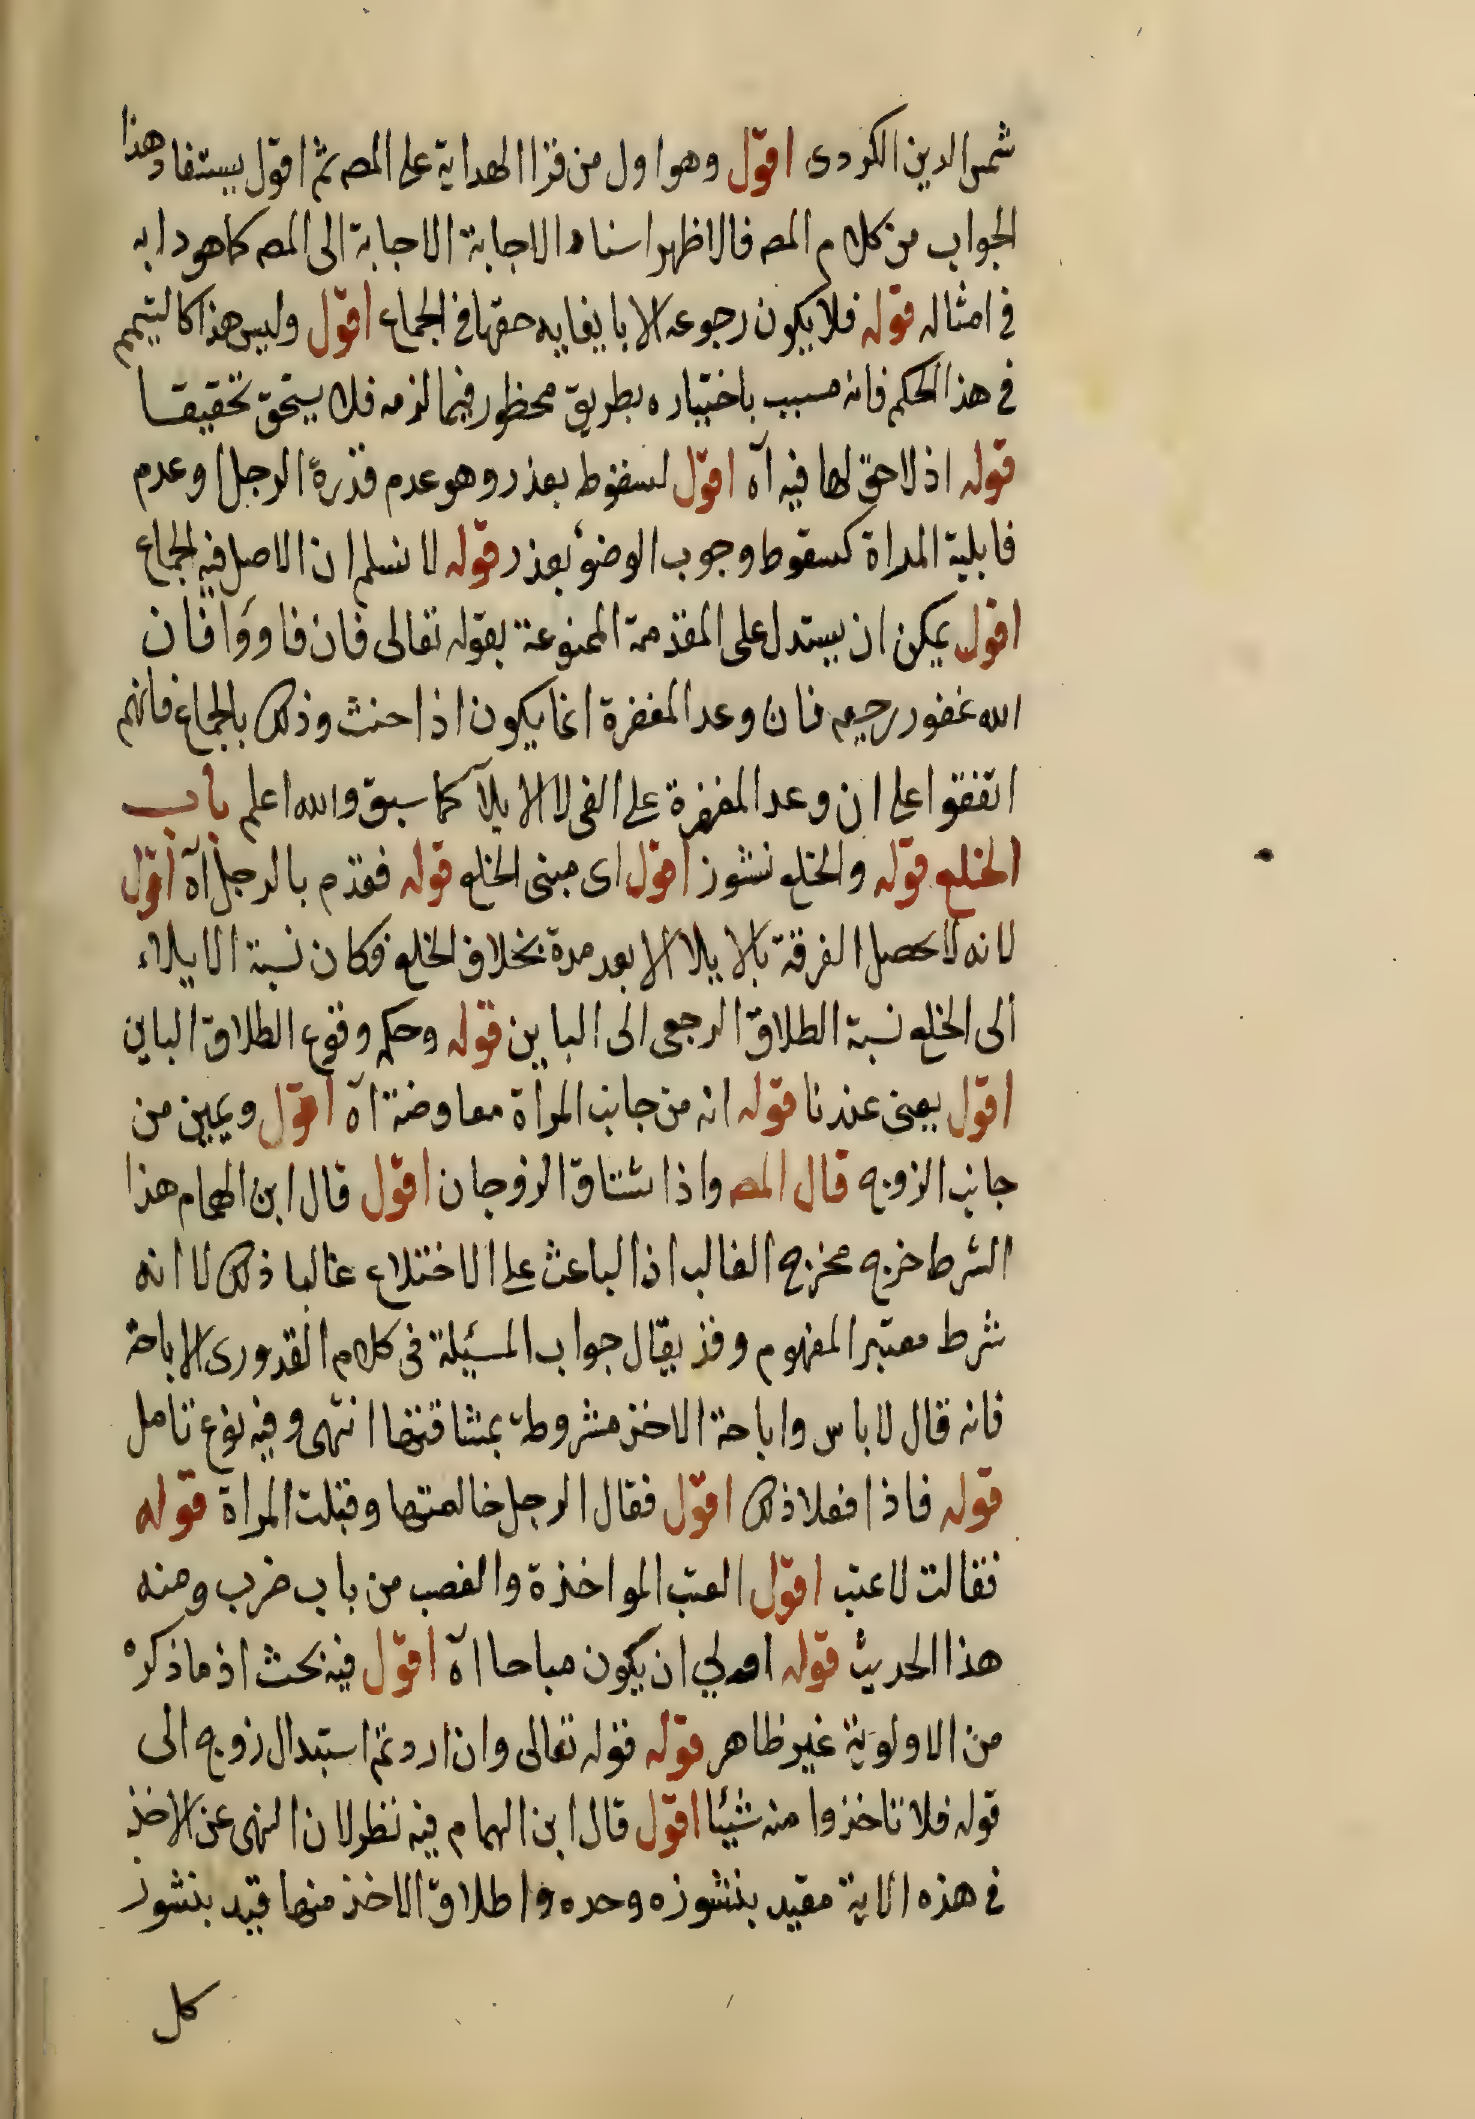 شمس الدين الكردى اقول وهو اول من قرا الهداية على المصه ثم اقول يستفاد هذا
الجواب من كلام المصه فالاظهر اسناد الاجابة الاجابة الى المصه كما هو دابه
فى امثاله قوله فلا يكون رجوعه الا بايفايه حقها فى الجماع اقول وليس هذا كالتيمم
فى هذا الحكم فانه مسبب باختياره بطريق محظور فيما لزمه فلا يستحق تخفيفا
قوله اذ لا حق لها فيه آه اقول لسقوط بعذر وهو عدم قدرة الرجل او عدم
قابلية المراة كسقوط وجوب الوضوء بعذر قوله لا نسلم ان الاصل فيه الجماع
اقول يمكن ان يستدل على المقدمة الممنوعة بقوله تعالى فان فاووا فان
الله غفور رحيم فان وعد المغفرة انما يكون اذا حنث وذلك بالجماع فانهم
اتفقوا على ان وعد المغفرة على الفى لا الايلآ كما سبق والله اعلم باب
الخلع قوله والخلع نشوز اقول اى مبنى الخلع قوله فقدم بالرجل آه اقول
لانه لا تحصل الفرقة بالايلا الا بعد مدة بخلاف الخلع فكان نسبة الايلاء
الى الخلع نسبة الطلاق الرجعى الى الباين قوله وحكمه وقوع الطلاق الباين
اقول يعنى عندنا قوله انه من جانب المرأة معاوضة آه اقول ويمين من
جانب الزوج قال المصه واذا تشاق الزوجان اقول قال ابن الهمام هذا
الشرط خرج مخرج الغالب اذ الباعث على الاختلاع غالبا ذلك لا انه
شرط معتبر المفهوم وقد يقال جواب المسئلة فى كلام القدورى الاباحة
فانه قال لا باس واباحة الاخذ مشروطة بمشاقتها انتهى وفيه نوع تامل
قوله فاذا فعلا ذلك اقول فقال الرجل خالعتها وقبلت المراة قوله
فقالت لا عتب اقول العتب المواخذة والغصب من باب ضرب ومنه
هذا الحديث قوله اولي ان يكون مباحا آه اقول فيه بحث اذ ما ذكره
من الاولوية غير ظاهر قوله قوله تعالى وان اردتم استبدال زوج الى
قوله فلا تاخذوا منه شيئا اقول قال ابن الهمام فيه نظر لان النهى عن الاخذ
فى هذه الاية مقيد بنشوزه وحده واطلاق الاخذ منها قيد بنشوز
كل